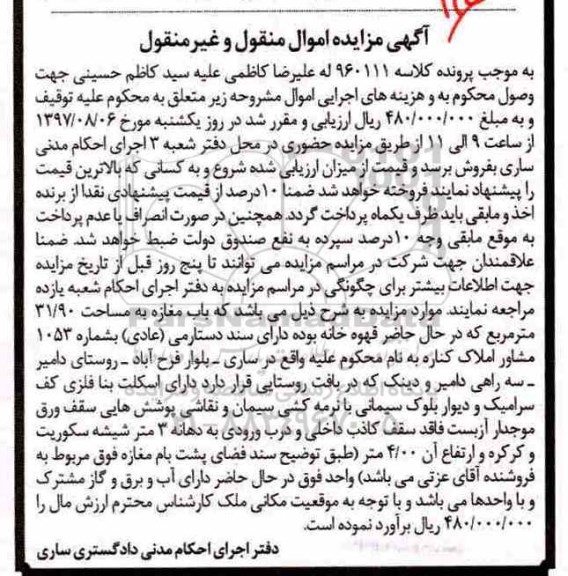 آگهی مزایده اموال منقول و غیر منقول
به موجب پرونده کلاسه ۹۶۰۱۱۱ له علیرضا کاظمی علیه سید کاظم حسینی جهت
وصول محکوم به و هزینه های اجرایی اموال مشروحه زیر متعلق به محکوم علیه توقیف
و به مبلغ ۴۸۰/۰۰۰/۰۰۰ ریال ارزیابی و مقرر شد در روز یکشنبه مورخ ۱۳۹۷/۰۸/۰۶
از ساعت ۹ الی ۱۱ از طریق مزایده حضوری در محل دفتر شعبه ۳ اجرای احکام مدنی
ساری بفروش برسد و قیمت از میزان ارزیابی شده شروع و به کسانی که بالاترین قیمت
را پیشنهاد نمایند فروخته خواهد شد ضمنا ۱۰درصد از قیمت پیشنهادی نقدا از برنده
اخذ و مابقی باید ظرف یکماه پرداخت گردد. همچنین در صورت انصراف یا عدم پرداخت
به موقع مابقی وجه ۱۰درصد سپرده به نفع صندوق دولت ضبط خواهد شد. ضمنا
علاقمندان جهت شرکت در مراسم مزایده می توانند تا پنج روز قبل از تاریخ مزایده
جهت اطلاعات بیشتر برای چگونگی در مراسم مزایده به دفتر اجرای احکام شعبه یازده
مراجعه نمایند. موارد مزایده به شرح ذیل می باشد که باب مغازه به مساحت ۳۱/۹۰
مترمربع که در حال حاضر قهوه خانه بوده دارای سند دستارمی (عادی) بشماره ۱۰۵۳
مشاور املاک کناره به نام محکوم علیه واقع در ساری ـ بلوار فرح آباد ـ روستای دامیر
ـ سه راهی دامیر و دینک که در بافت روستایی قرار دارد دارای اسکلت بنا فلزی کف
سرامیک و دیوار بلوک سیمانی با نرمه کشی سیمان و نقاشی پوشش هایی سقف ورق
موجدار آزبست فاقد سقف کاذب داخلی و درب ورودی به دهانه ۳ متر شیشه سکوریت
و کرکره و ارتفاع آن ۴/۰۰ متر (طبق توضیح سند فضای پشت بام مغازه فوق مربوط به
فروشنده آقای عزتی می باشد) واحد فوق در حال حاضر دارای آب و برق و گاز مشترک
و با واحدها می باشد و با توجه به موقعیت مکانی ملک کارشناس محترم ارزش مال را
۴۸۰/۰۰۰/۰۰۰ ریال برآورد نموده است.
دفتر اجرای احکام مدنی دادگستری ساری